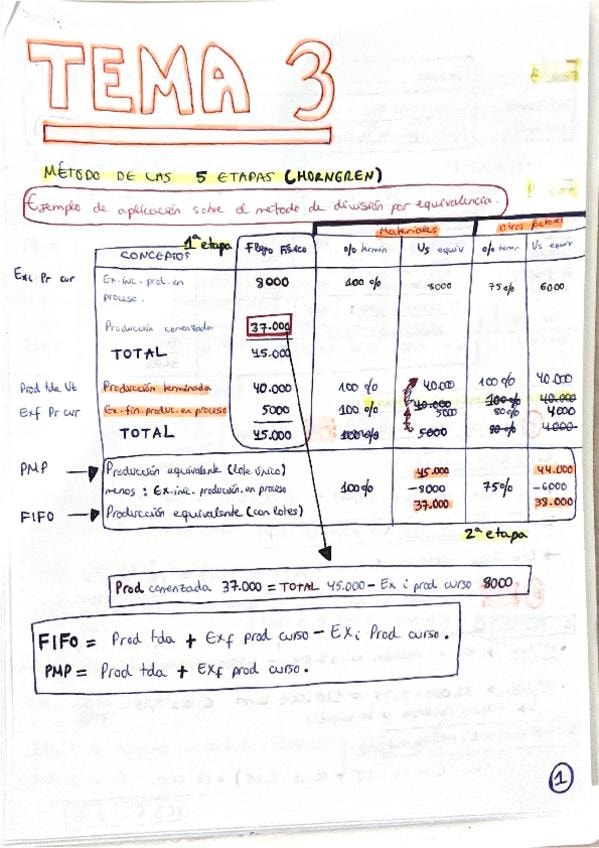 TEMA 3
MÉTODO DE LAS 5 ETAPAS (HORNGREN)
Ejemplo de aplicación sobre el método de división por equivalencia.
Materiales Otros factores
1ª etapa
CONCEPTOS Flujo Físico % termin Us equiv % term Us equiv
Exi Pr cur Ex. inic. prod. en proceso. 8000 100% 8000 75% 6000
Producción comenzada 37.000
TOTAL 45.000
Prod tda Ut Producción terminada 40.000 100% 40.000 100% 40.000
40.000 100% 40.000
Exf Pr cur Ex. fin. produc. en proceso 5000 100% 5000 80% 4000
TOTAL 45.000 100% 5000 80% 4000
PMP Producción equivalente (lote único) 45.000 44.000
menos: Ex. inic. producción en proceso 100% -8000 75% -6000
FIFO Producción equivalente (con lotes) 37.000 38.000
2ª etapa
Prod comenzada 37.000 = TOTAL 45.000 - Ex i prod curso 8000
FIFO = Prod tda + Exf prod curso - Exi Prod curso.
PMP = Prod tda + Exf prod curso.
1